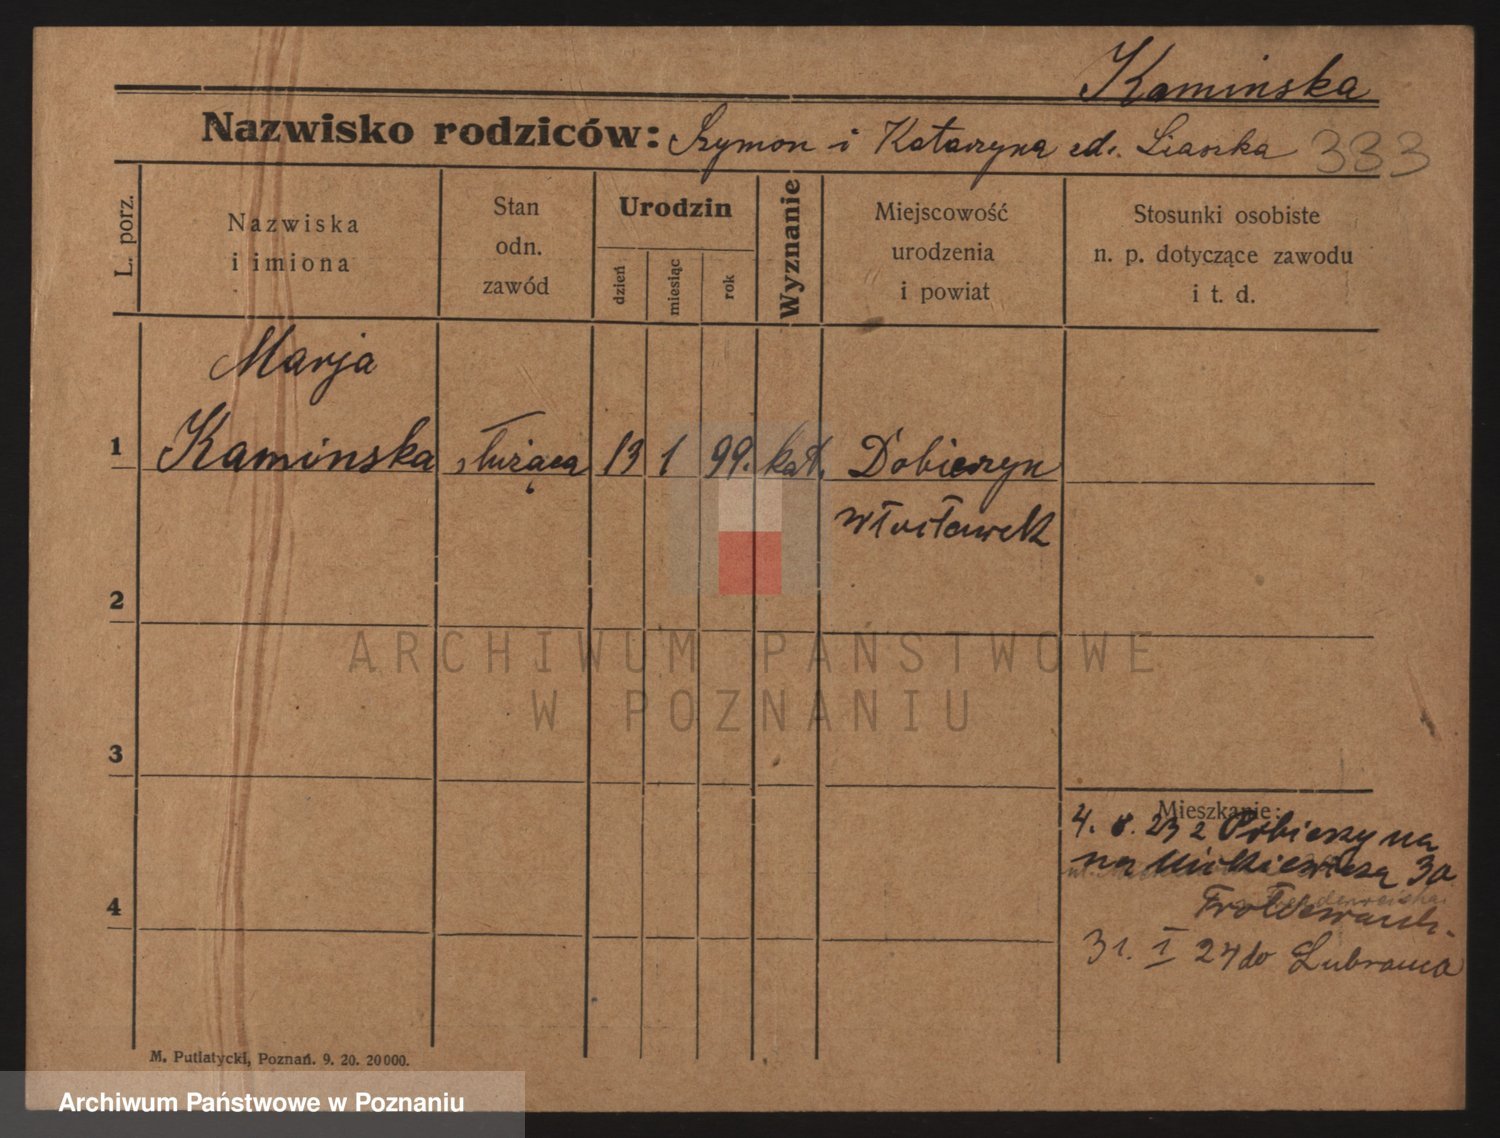 Kaminska
Nazwisko rodziców: Szymon i Katarzyna
333
L. porz.
Nazwiska
i imiona
Stan
odn.
zawód
Urodzin
dzień
miesiąc
rok
Wyznanie
Miejscowość
urodzenia
i powiat
Stosunki osobiste
n. p. dotyczące zawodu
i t. d.
Marja
1 Kaminska służąca 13 1 99. kat. Dobieszyn
Włocławek
2
ARCHIWUM PAŃSTWOWE
W POZNANIU
3
Mieszkanie:
4. 8. 23 z
na Mickiewicza 30
4
31. I 24 do Lubrańca
M. Putiatycki, Poznań. 9. 20. 20000.
Archiwum Państwowe w Poznaniu